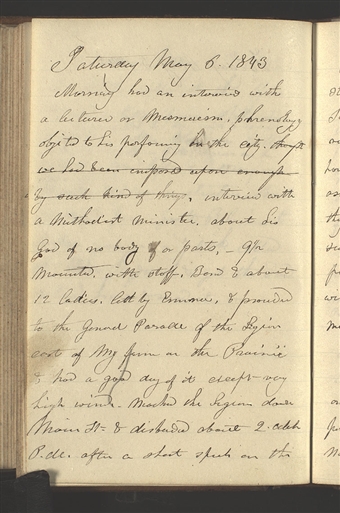 Saturday May 6. 1843
Morning had an interview with
a lecturer on Mesmerism. phrenology
objected to his performing in the city. thought
we had been imposed upon enough
by such kind of things, interview with
a Methodist minister. about his
God of no body or parts, - 9½
Mounted. with staff, Band & about
12 ladies. led by Emma, & proceeded
to the General Parade of the Legion
east of My farm on the Prairie
& had a good day of it except very
high wind. Marched the Legion down
Main St. & disbanded about 2. oclock
P.M. after a short speech on the